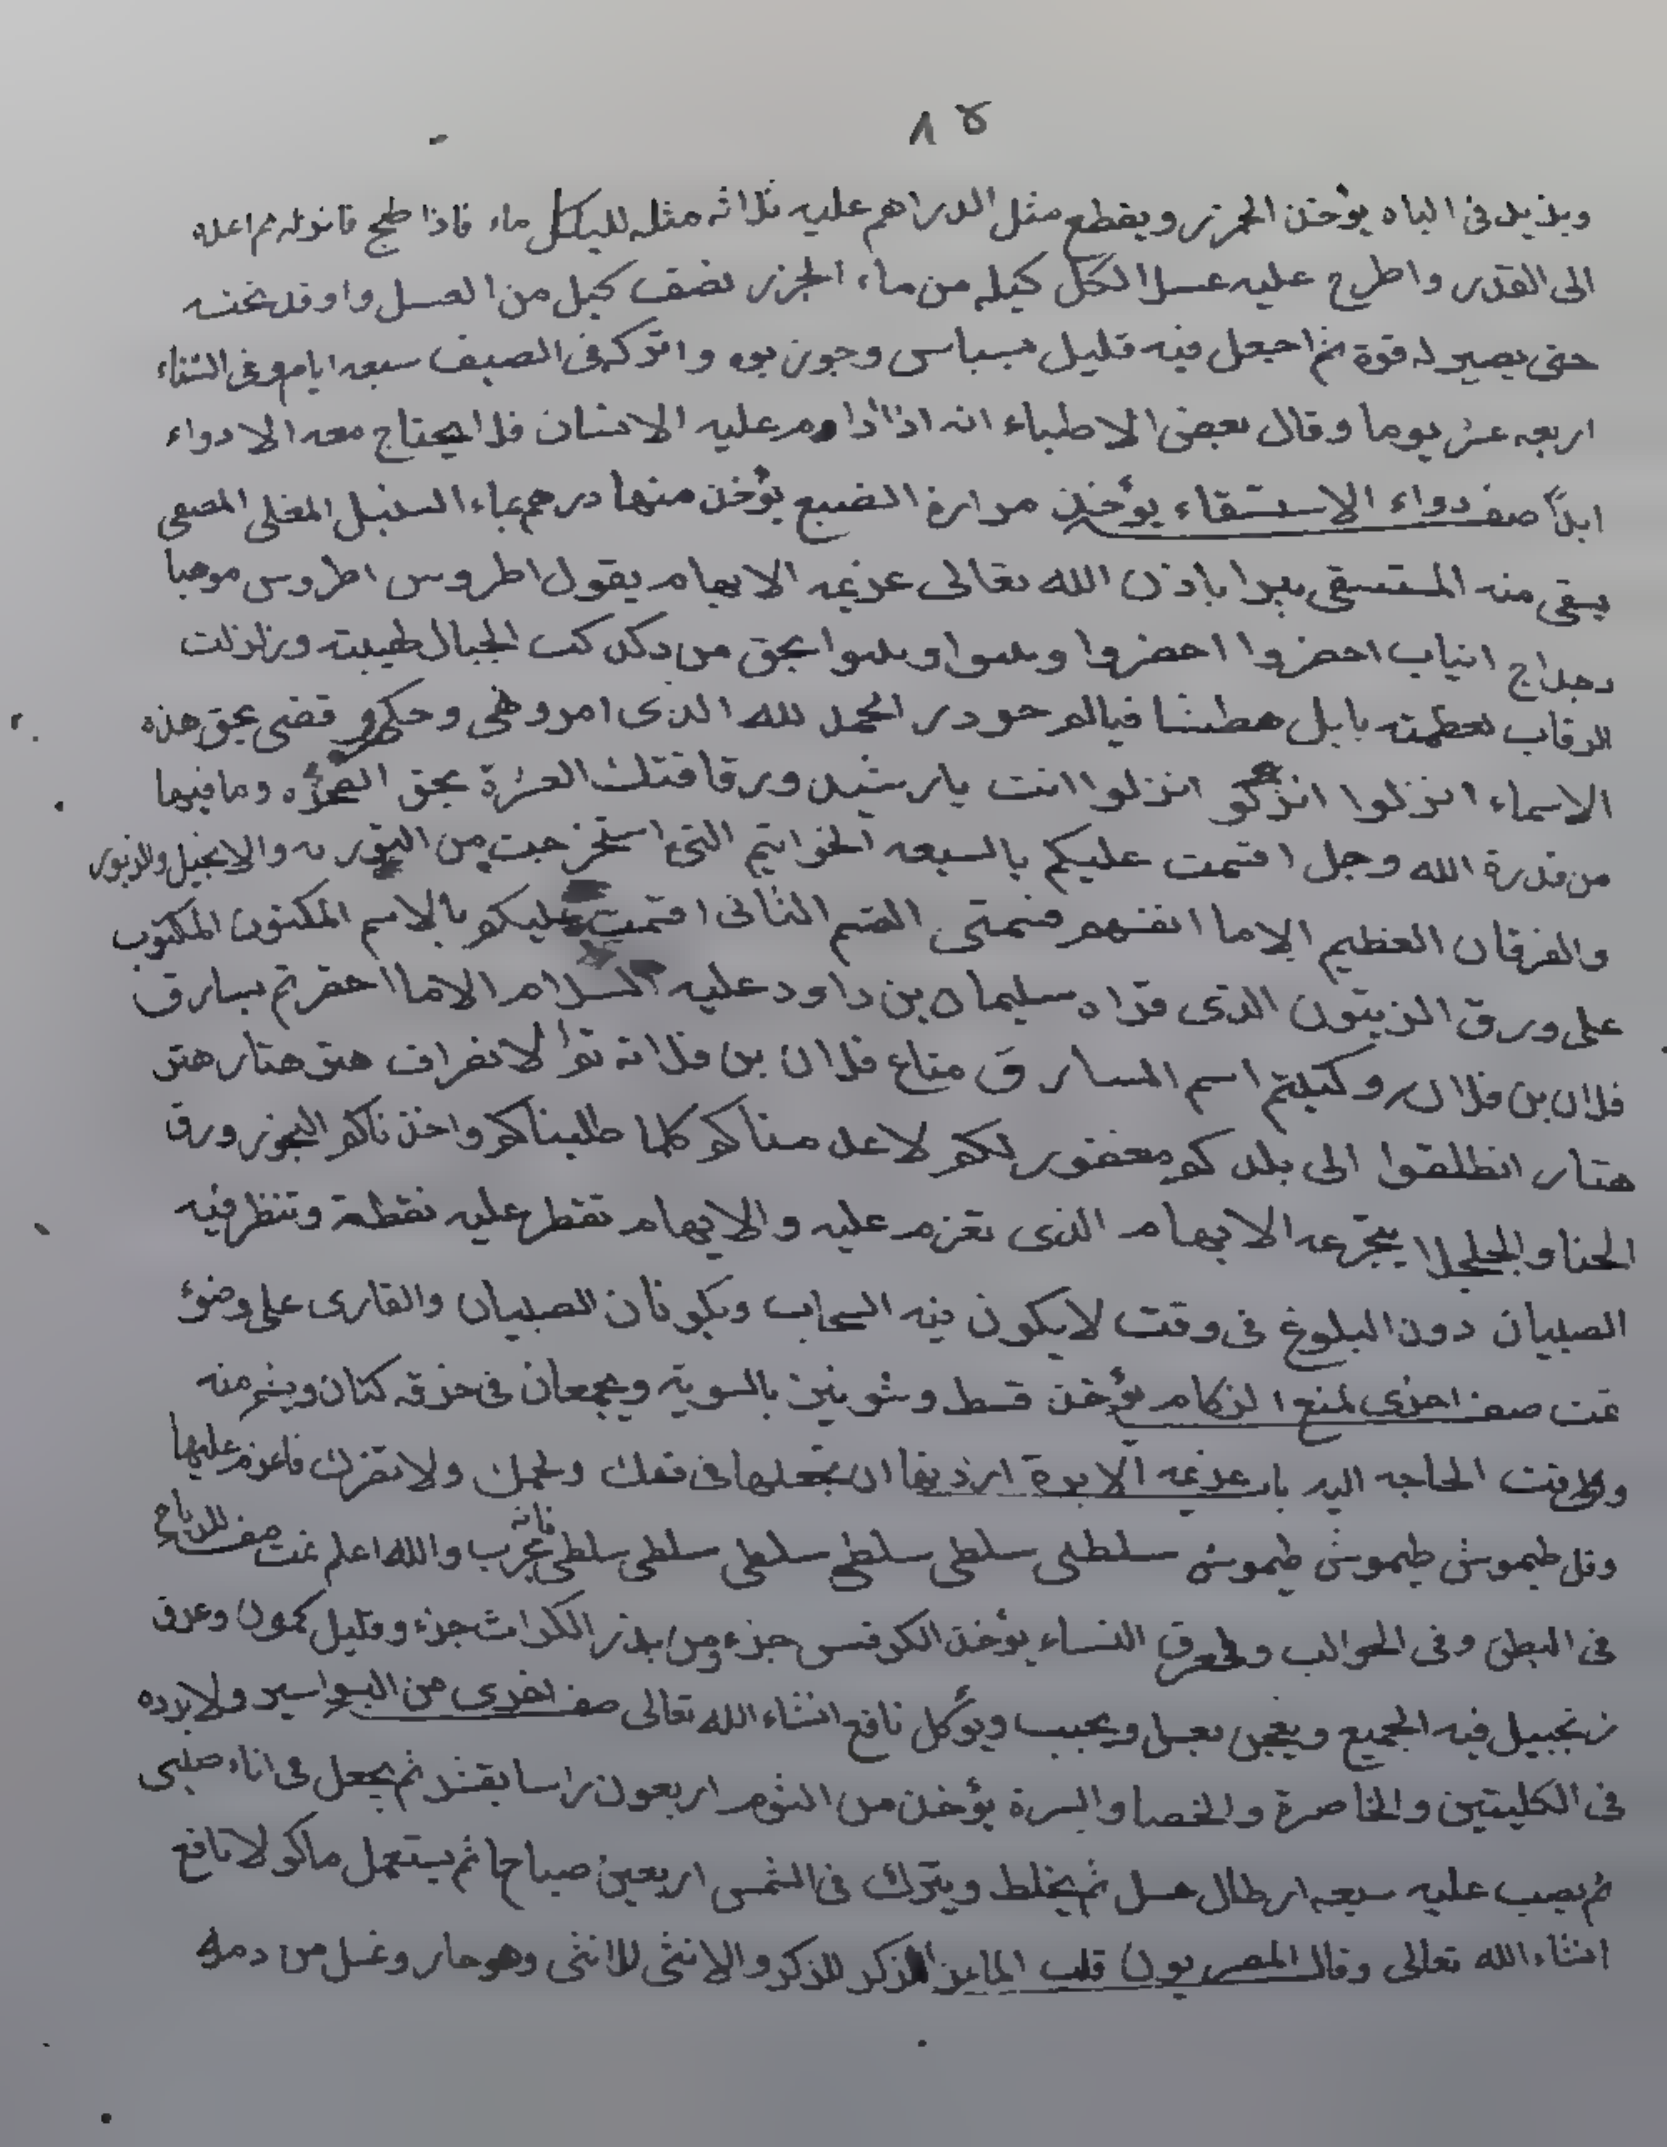 ١٥
ويزيد في الباه يؤخذ الجزر ويقطع مثل الدراهم عليه ثلاثه مثله ماء فاذا طبخ فانزله ثم اعله
الى القدر واطرح عليه عسلا لكل كيله من ماء الجزر نصف كيل من العسل واوقد تحته
حتى يصير له قوة ثم اجعل فيه قليل بسباس وجوز بوه واتركه في الصيف سبعه ايام وفي الشتاء
اربعه عشر يوما وقال بعض الاطباء انه اذا داوم عليه الانسان فلا يحتاج معه الا دواء
ابدًا صفه دواء الاستسقاء يؤخذ مرارة الضبع يؤخذ منها درهم بماء السنبل المغلى المصفى
يسقى منه المستسقى يبرا باذن الله تعالى عزيمه الابهام يقول اطروس اطروس
انياب احضروا احضروا بحق من الجبال لهيبته وزلزلت
الرقاب لعظمته بابل الحمد لله الذى امر ونهى وحكم وقضى بحق هذه
الاسماء انزلوا انزلو انزلوا انت يا رشيد ورفاقتك العشرة بحق وما فيها
من قدرة الله وجل اقسمت عليكم بالسبعه الخواتيم التى استخرجت من التورىه والانجيل والزبور
والفرقان العظيم الاما القسم الثانى اقسمت عليكم بالاسم المكنون المكتوب
على ورق الزيتون الذى قراه سليمان بن داود عليه السلام الاما احضرتم بسارق
فلان بن فلان وكتبتم اسم السارق متاع فلان بن فلانه الانصراف هتر هتار هتر
هتار انطلقوا الى بلدكم مغفور لكم لاعدمناكم كلما طلبناكم واخذناكم البخور ورق
الحنا والجلجلا الابهام الذى تعزم عليه والابهام تقطر عليه نقطة وتنظر فيه
الصبيان دون البلوغ في وقت لا يكون فيه السحاب ويكونان الصبيان والقارى على وضؤ
تمت صفه اخرى لمنع الزكام يؤخذ قسط وشونيز بالسويه ويجمعان في خرقه كتان ويشم منه
وقت الحاجه اليه باب عزيمه الابرة ان تجعلها في فمك ولحمك ولا تضرك فاعزم عليها
وقل طيموش طيموش طيموش سلطى سلطى سلطى سلطى سلطى سلطى فانه مجرب والله اعلم تمت صفه للرياح
في البطن وفى الحوالب النساء يؤخذ الكرفس جزء ومن بذر الكراث جزء وقليل كمون وعرق
زنجبيل فيه الجميع ويعجن بعسل ويحبب ويؤكل نافع انشاء الله تعالى صفه اخرى من البواسير ولابرده
في الكليتين والخاصرة والخصا والسرة يؤخذ من الثوم اربعون راسا يقشر ثم يجعل فى اناء صينى
ثم يصب عليه سبعه ارطال عسل ثم يخلط ويترك في الشمس اربعين صباحا ثم يستعمل ماكولا نافع
انشاء الله تعالى وقال المصريون قلب الماعز الذكر للذكر والانثى للانثى وهو حار وغسل من دمه